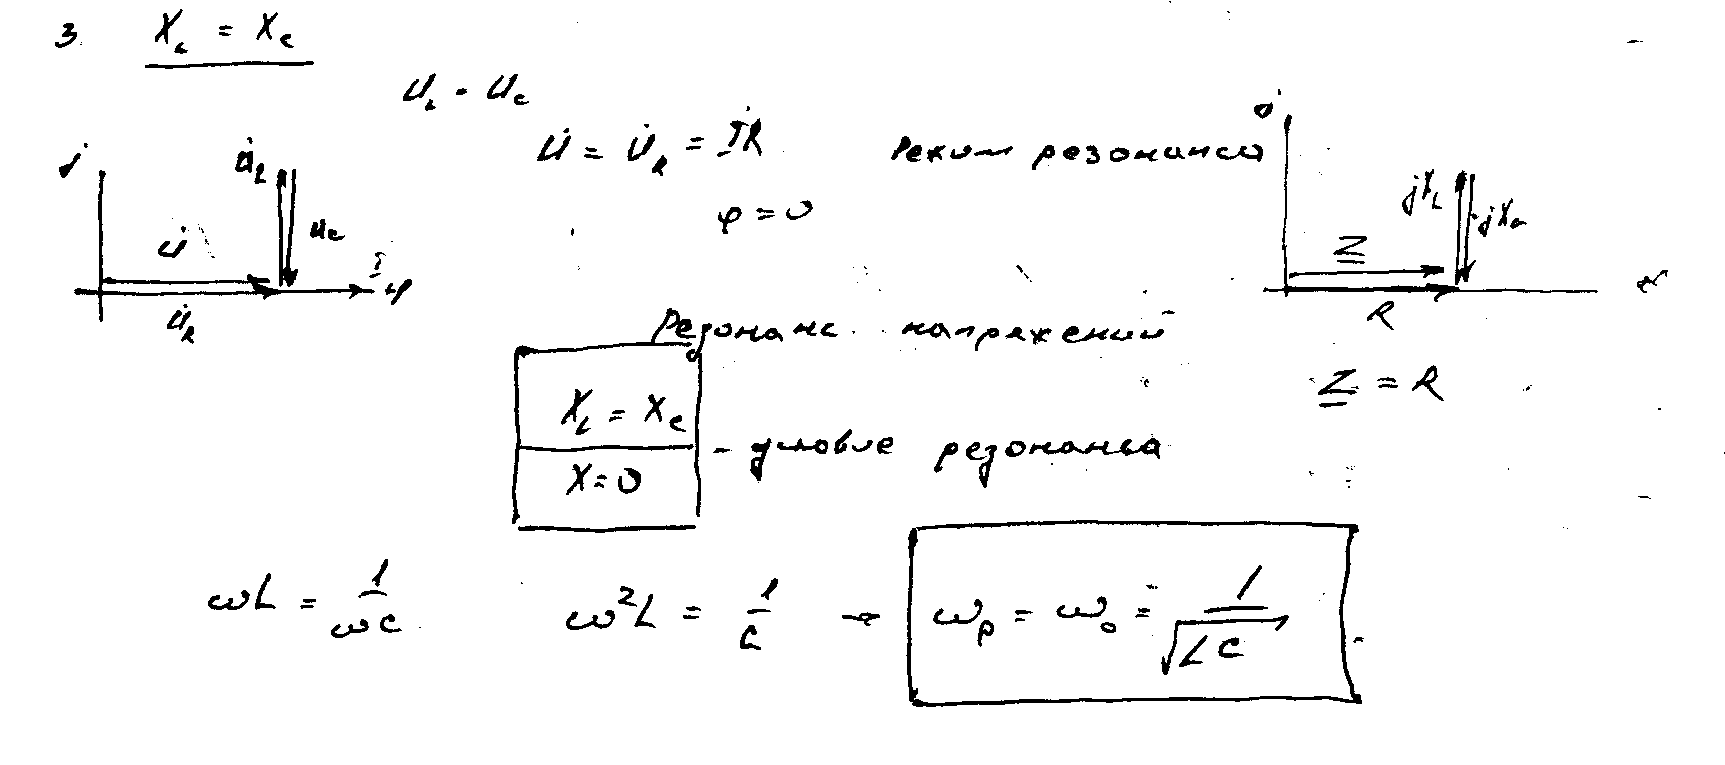 3. X_L = X_C
U_L = U_C
U̇ = U̇_R = İR Режим резонанса
φ = 0
j U̇_L U_C U̇ İ +1 U̇_R
j jX_L -jX_C Z R +
Резонанс напряжений
Z = R
X_L = X_C
X = 0 - условие резонанса
ωL = 1/ωC ω²L = 1/C → ω_р = ω_0 = 1/√LC